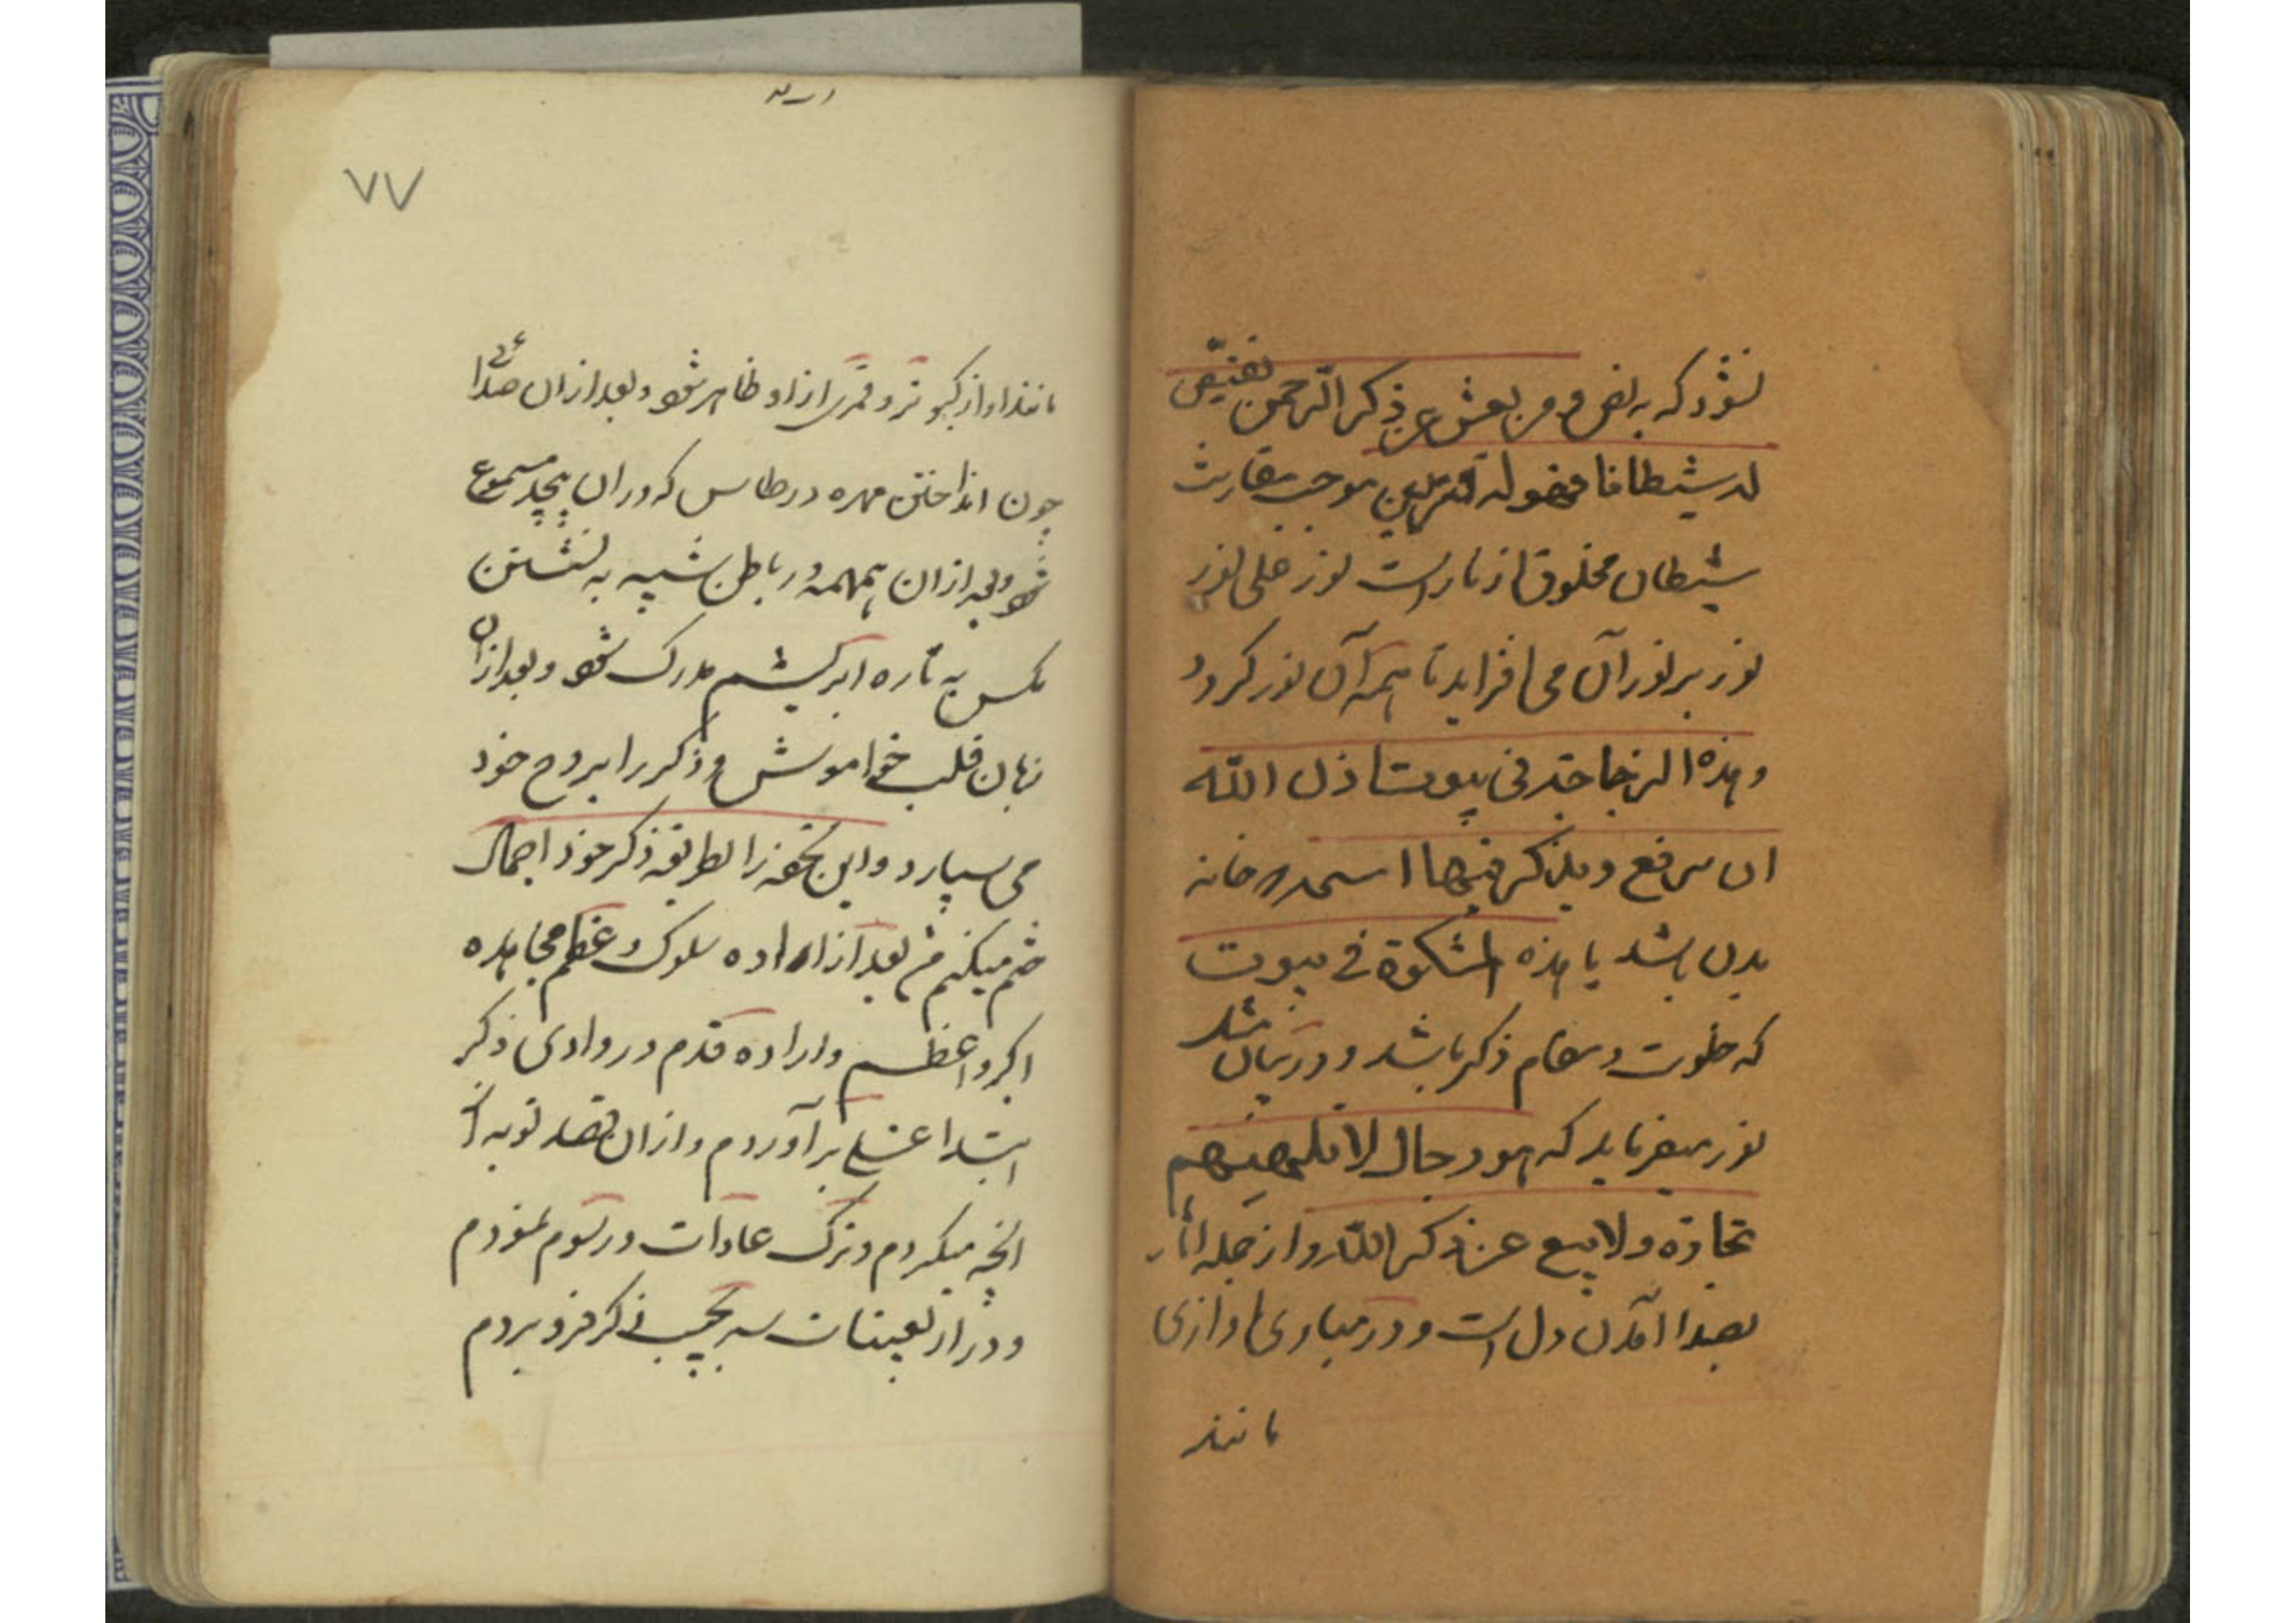 نشود که به نص و من یعش عن ذکر الرحمن نقیض
له شیطانا فهو له قرین موجب مقارنت
شیطان مخلوق از نار است نور علی نور
نور بر نور آن می افزاید تا همه آن نور کردد
و هذه الزجاجة فی بیوت اذن الله
ان ترفع و یذکر فیها اسمه در خانه
بدن باشد یا هذه المشکوة فی بیوت
که خلوت و مقام ذکر باشد و در بیان
نور میفرماید که هو رجال لا تلهیهم
تجارة ولا بیع عن ذکر الله و از جمله آثار
بصدا آمدن دل است و در مبادی اوازی
مانند
٧٧
مانند اواز کبوتر و قمری ازاو ظاهر شود و بعد ازان صدائی
چون انداختن مهره در طاس که دران پیچد مسموع
شود و بعد ازان همهمه در باطن شبیه به نشستن
مکس به تاره ابریشم مدرک شود و بعد ازان
زبان قلب خواموش و ذکر را بروح خود
می سپارد و این تحفه را بطریقه ذکر خود اجمال
ختم میکنم من بعد از اراده سلوک و عظم مجاهده
اکبر و اعظم و اراده قدم در وادی ذکر
ابتدا غسلی برآوردم و ازان بقصد توبه از
انچه میکردم و ترک عادات و رسوم نمودم
و در از تعینات سر بجیب ذکر فرو بردم